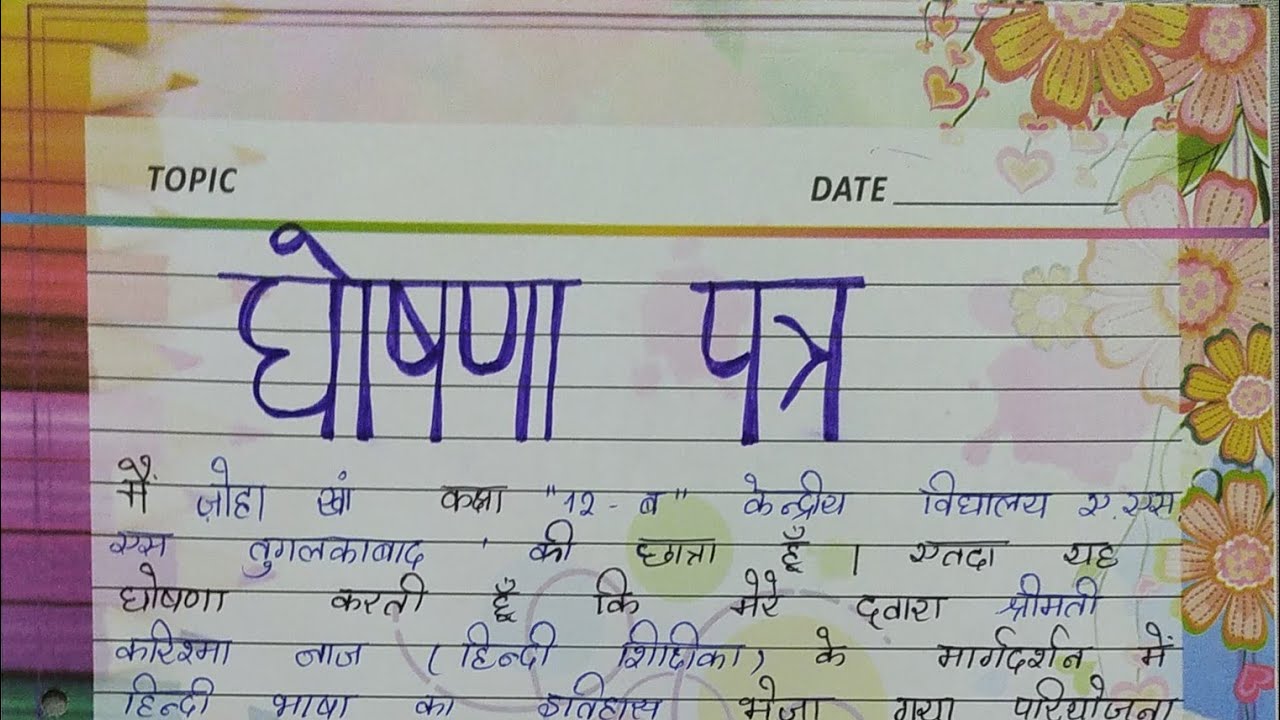 TOPIC
DATE
घोषणा पत्र
मैं ज़ोहा खां कक्षा "१२ - ब" केन्द्रीय विद्यालय ए.एस.
एस तुगलकाबाद ' की छात्रा हूँ । एतदा यह
घोषणा करती हूँ कि मेरे द्वारा श्रीमती
करिश्मा नाज ( हिन्दी शिक्षिका ) के मार्गदर्शन में
हिन्दी भाषा का इतिहास भेजा गया परियोजना